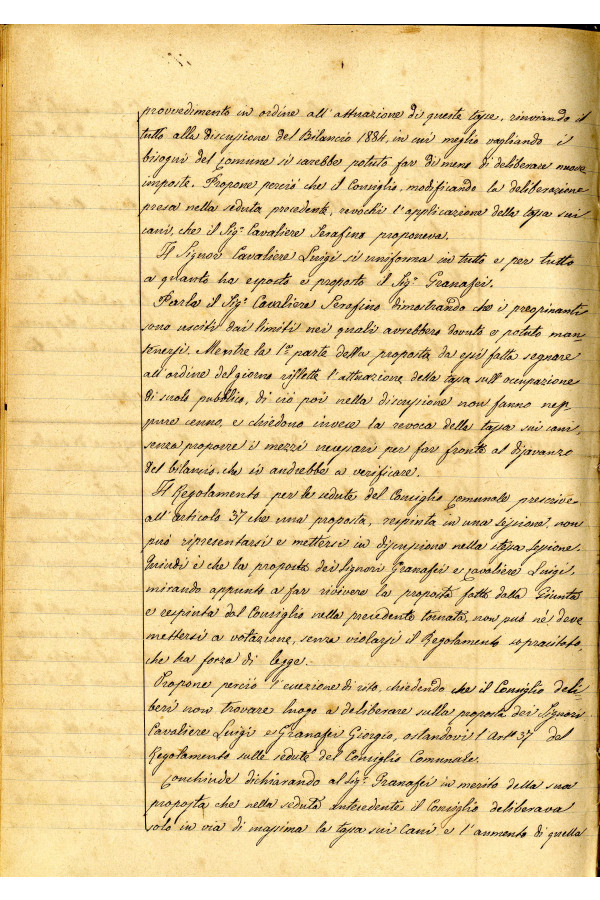 provvedimento in ordine all'attuazione di queste tasse, rinviando il
tutto alla discussione del Bilancio 1884, in cui meglio vagliando i
bisogni del Comune si sarebbe potuto far di meno di deliberare nuove
imposte. Propone perciò che il Consiglio, modificando la deliberazione
presa nella seduta precedente, revochi l'applicazione della tassa sui
cani, che il Sigr Cavaliere Serafino proponeva.
Il Signor Cavaliere Luigi si uniforma in tutto e per tutto
a quanto ha esposto e proposto il Sigr Granafei.
Parla il Sigr Cavaliere Serafino dimostrando che i preopinanti
sono usciti dai limiti nei quali avrebbero dovuto e potuto man=
tenersi. Mentre la 1a parte della proposta da essi fatta segnare
all'ordine del giorno riflette l'attuazione della tassa sull'occupazione
di suolo pubblico, di ciò poi nella discussione non fanno nep=
pure cenno, e chiedono invece la revoca della tassa sui cani,
senza proporre i mezzi necessari per far fronte al disavanzo
del bilancio, che si andrebbe a verificare.
Il Regolamento per le sedute del Consiglio Comunale prescrive
all'articolo 37 che una proposta, respinta in una sessione, non
può ripresentarsi e mettersi in discussione nella stessa sessione.
Quindi è che la proposta dei Signori Granafei e Cavaliere Luigi,
mirando appunto a far rivivere la proposta fatta dalla Giunta
e respinta dal Consiglio nella precedente tornata, non può né deve
mettersi a votazione, senza violarsi il Regolamento sopracitato,
che ha forza di legge.
Propone perciò l'eccezione di rito, chiedendo che il Consiglio deli=
beri non trovare luogo a deliberare sulla proposta dei Signori
Cavaliere Luigi e Granafei Giorgio, ostandovi l'Arto 37 del
Regolamento sulle sedute del Consiglio Comunale.
Conchiude dichiarando al Sigr Granafei in merito della sua
proposta che nella seduta antecedente il Consiglio deliberava
solo in via di massima la tassa sui cani e l'aumento di quella